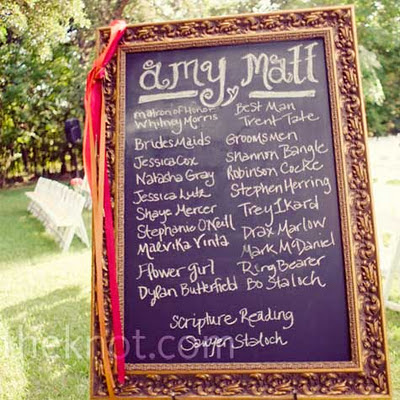 amy Matt
matron of Honor
Whitney Morris
Bridesmaids
Jessica Cox
Natasha Gray
Jessica Lutz
Shaye Mercer
Stephanie O'Neill
Malvika Vinta
Flower girl
Dylan Butterfield
Best Man
Trent Tate
Groomsmen
Shannon Bangle
Robinson Cocke
Stephen Herring
Trey Ikard
Drax Marlow
Mark McDaniel
Ring Bearer
Bo Staloch
Scripture Reading
Sawyer Staloch
theknot.com